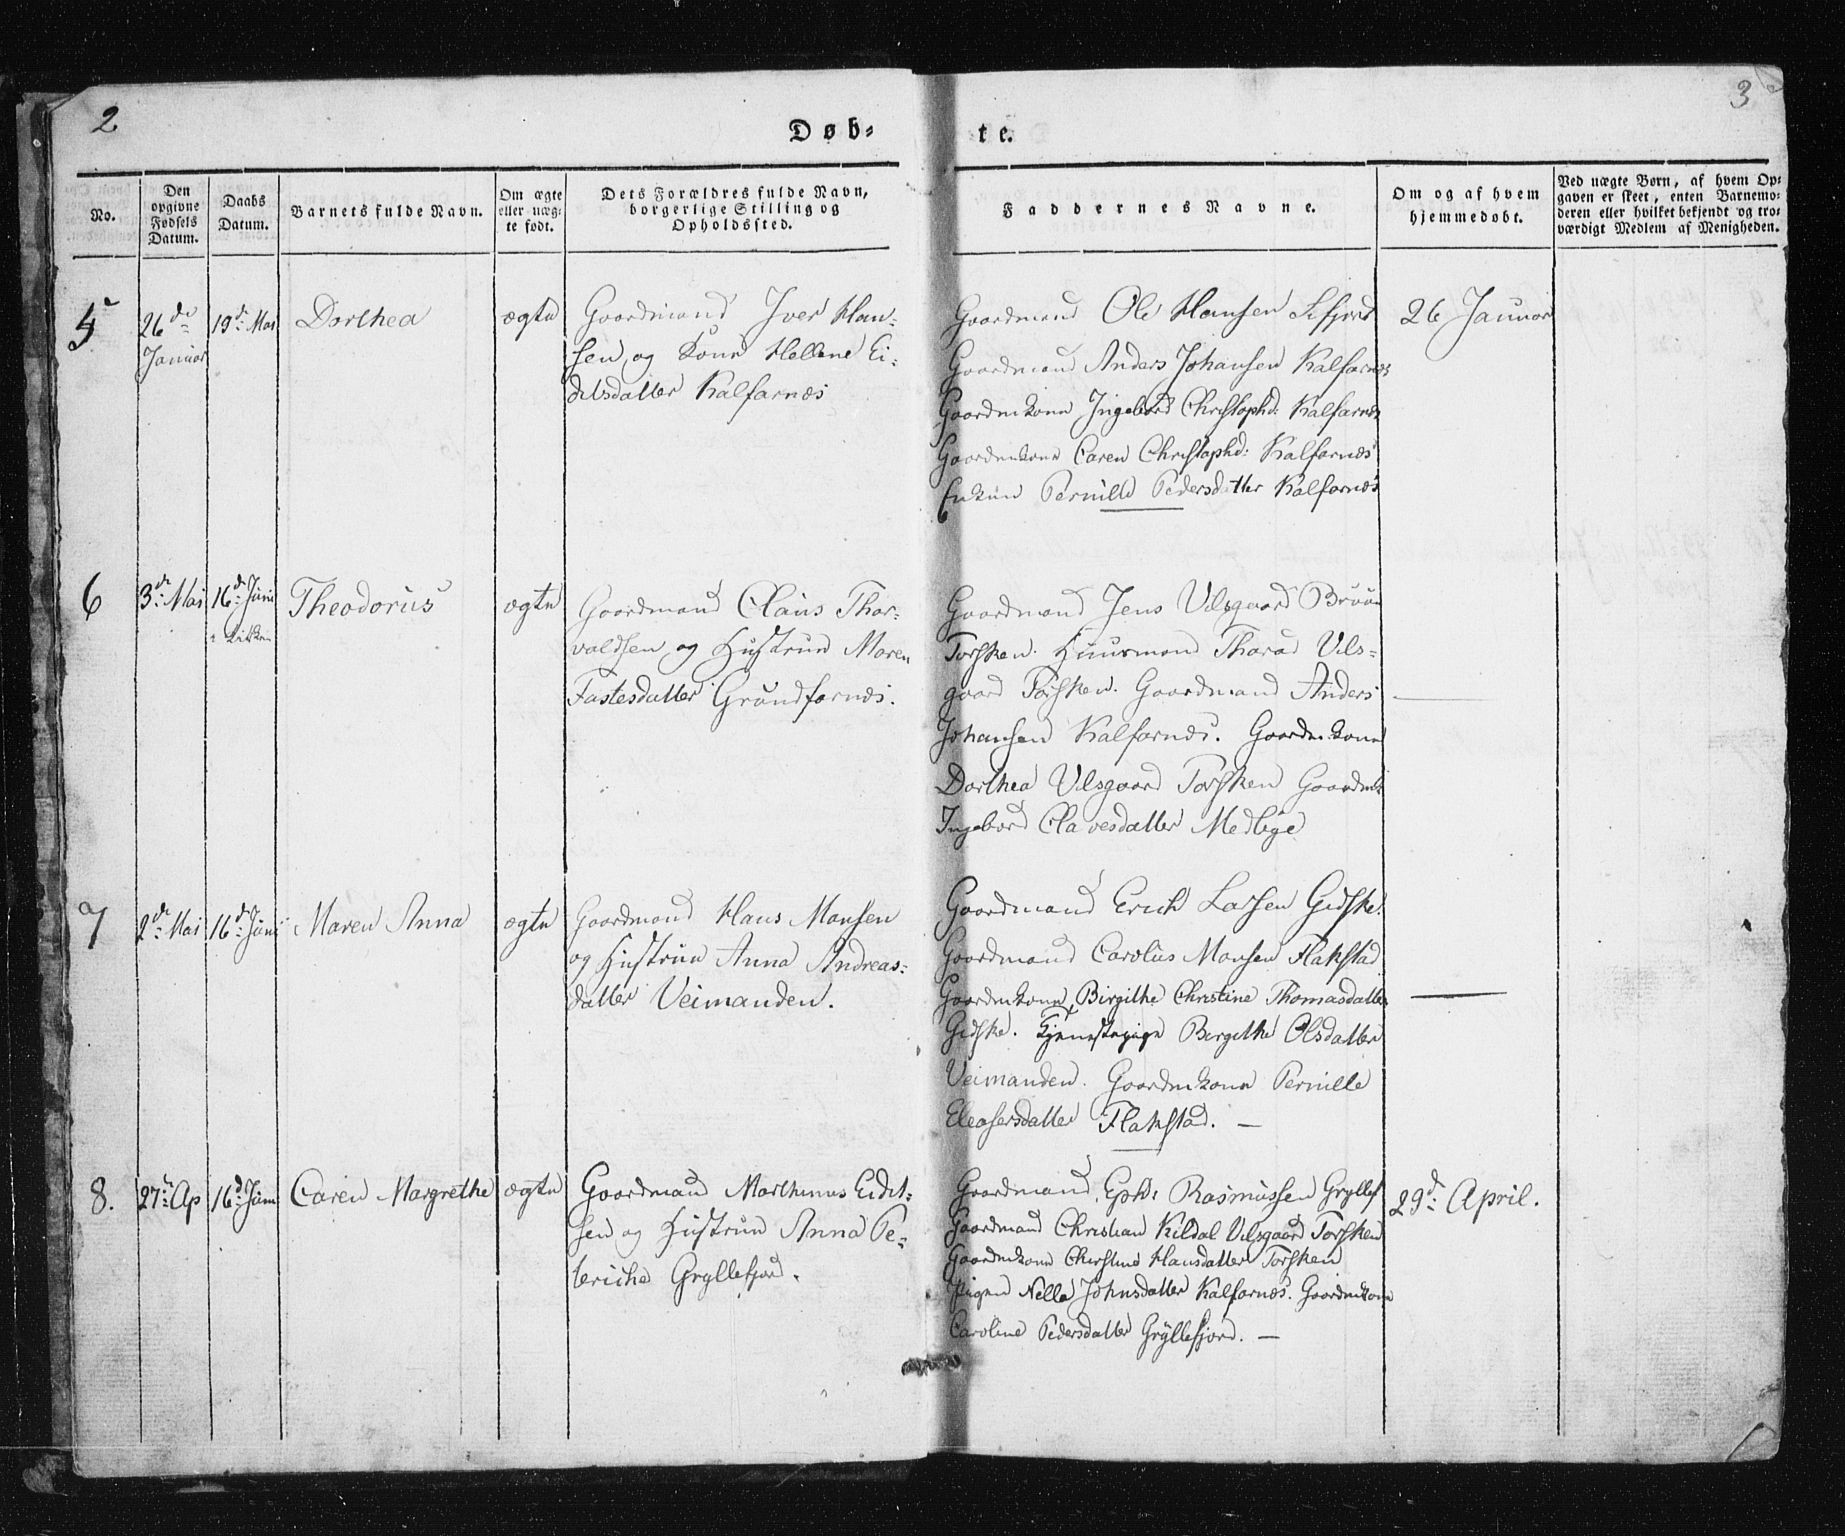 2
3
Døb-
te.
No.
Den opgivne Fødsels Datum.
Daabs Datum.
Barnets fulde Navn.
Om ægte eller uægte født.
Dets Forældres fulde Navn, borgerlige Stilling og Opholdssted.
Faddernes Navne.
Om og af hvem hjemmedøbt.
Ved uægte Børn, af hvem Opgaven er skeet, enten Barnemoderen eller hvilket bekjendt og troværdigt Medlem af Menigheden.
5
26de Januar
19de Mai
Dorthea
ægte
Gaardmand Iver Han-
sen og Kone Hellene Ei-
delsdatter Kalfarnæs
Gaardmand Ole Hansen Sifjord
Gaardmand Anders Johansen Kalfarnæs
Gaardmkone Ingebord Christophd: Kalfarnæs
Gaardmkone Caren Christophd: Kalfarnæs
Enken Pernille Pedersdatter Kalfarnæs
26 Januar
6
3de Mai
16de Juni
Theodorius
ægte
Gaardmand Claus Thor-
valdsen og Hustrue Maren
Fastesdatter Grundfarnæs.
Gaardmand Jens Vilsgaard Bruun
Torsken. Huusmand Tharad Vils-
gaard Torsken. Gaardmand Anders
Johansen Kalfarnæs. Gaardmkone
Dorthea Vilsgaard Torsken Gaardmk
Ingebord Clavesdatter Medbye
7
2de Mai
16de Juni
Maren Anna
ægte
Gaardmand Hans Monsen
og Hustrue Anna Andreas-
datter Veimanden.
Gaardmand Erich Larsen Gidske.
Gaardmand Carolius Monsen Flakstad
Gaardmkone Birgithe Christine Thomasdatter
Gidske. Tjenestepige Bergithe Olsdatter
Veimanden. Gaardmkone Pernille
Eleasersdatter Flakstad. —
8.
27de Ap
16de Juni
Caren Margrethe
ægte
Gaardmand Marthinus Eidit-
sen og Hustrue Anna Pe-
teriche Gryllefjord.
Gaardmand Rasmussen Gryllef
Gaardmand Christian Kildal Vilsgaard Torsken
Gaardmkone Christine Hansdatter Torsken
Pigen Nella Johnsdatter Kalfarnæs. Gaardmkone
Caroline Pedersdatter Gryllefjord. —
29de April.